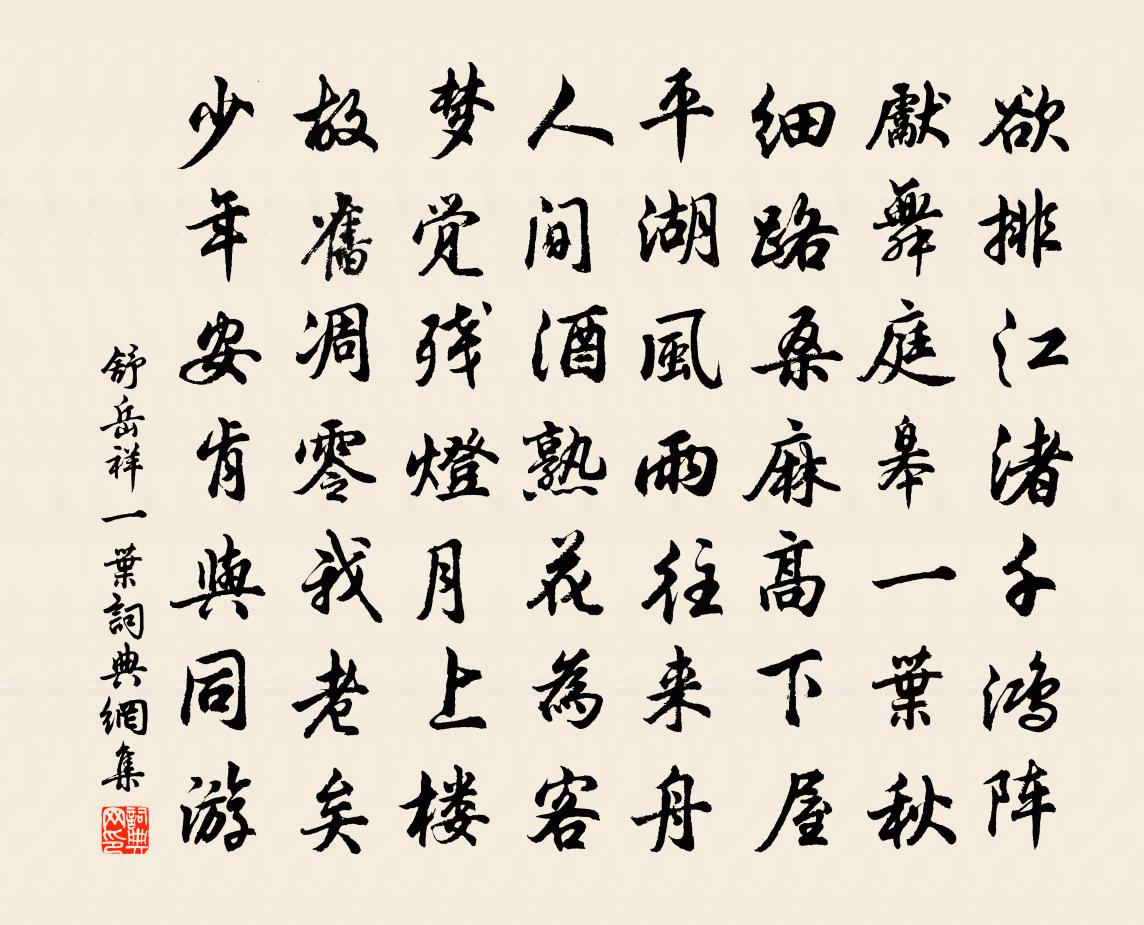 欲排江渚千鸿阵
献舞庭皋一葉秋
细路桑麻高下屋
平湖風雨往来舟
人间酒熟花為客
梦觉残燈月上楼
故舊凋零我老矣
少年安肯與同游
舒岳祥一葉詞典網集
詞典
网印